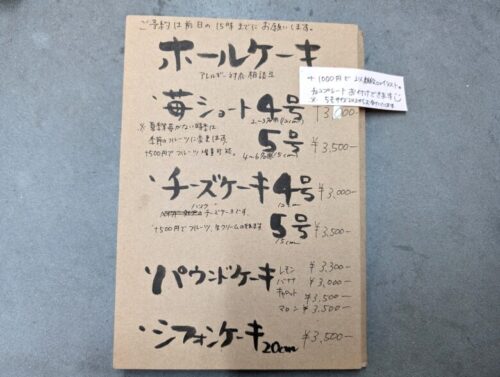 ご予約は前日の15時までにお願いします。
ホールケーキ
アレルギー対応相談可
+1000円で
チョコプレートお付けできます
苺ショート 4号
2~3名用(12cm)
※ 夏季苺がない時季は
季節のフルーツに変更します。
+500円でフルーツ増量可能。
5号 ¥3,500-
4~6名用(15cm)
・チーズケーキ 4号 ¥3,000-
12cm
ベイクドチーズケーキです。
+500円でフルーツ、生クリームのせれます
5号 ¥3,500-
15cm
・パウンドケーキ レモン ¥3,300-
バナナ ¥3,000-
キャロット ¥3,500-
マロン ¥3,500-
・シフォンケーキ 20cm ¥3,500-